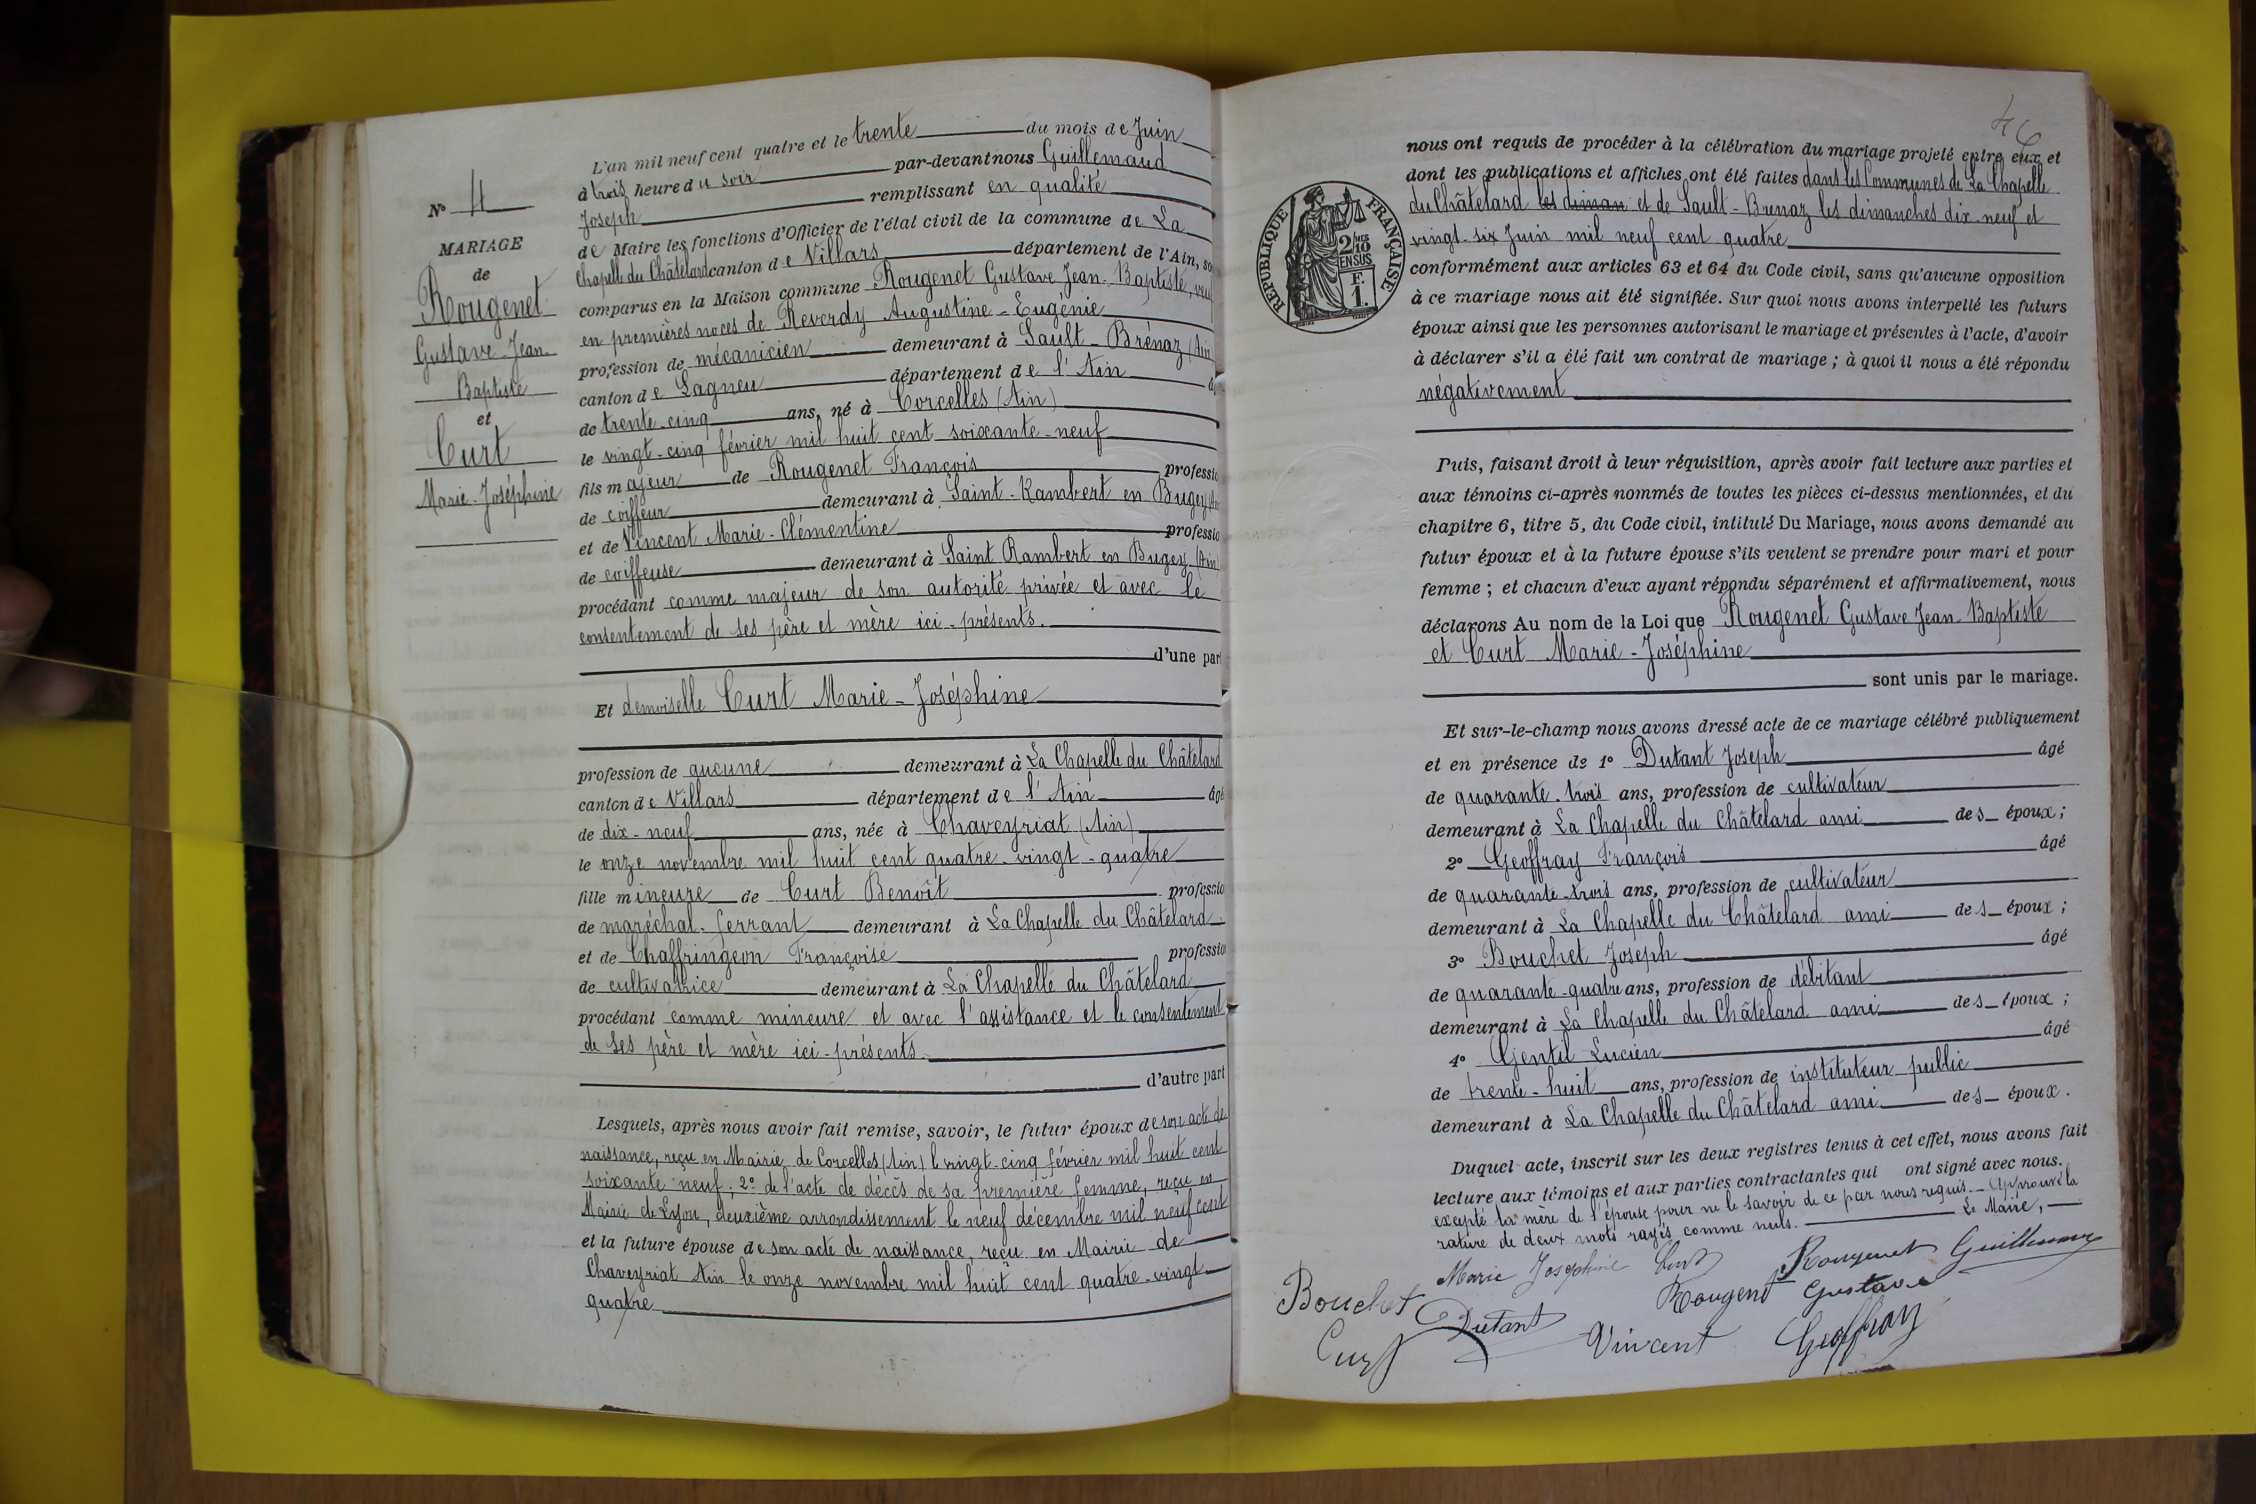 N° 4
MARIAGE
de
Rougenet
Gustave Jean-
Baptiste
et
Curt
Marie-Joséphine
L'an mil neuf cent quatre et le trente du mois de Juin
à trois heure du soir par-devant nous Guillemaud
Joseph remplissant en qualité
de Maire les fonctions d'Officier de l'état civil de la commune de La
Chapelle du Châtelard canton de Villars département de l'Ain, so
comparus en la Maison commune Rougenet Gustave Jean-Baptiste, veu
en premières noces de Reverdy Augustine-Eugénie
profession de mécanicien demeurant à Sault-Brénaz (Ain
canton de Lagneu département de l'Ain âg
de trente-cinq ans, né à Corcelles (Ain)
le vingt-cinq février mil huit cent soixante-neuf
fils majeur de Rougenet François professio
de coiffeur demeurant à Saint-Rambert en Bugey
et de Vincent Marie-Clémentine professio
de coiffeuse demeurant à Saint Rambert en Bugey (Ain)
procédant comme majeur de son autorité privée et avec le
consentement de ses père et mère ici-présents.
d'une part
Et demoiselle Curt Marie-Joséphine
profession de aucune demeurant à La Chapelle du Châtelard
canton de Villars département de l'Ain âgé
de dix-neuf ans, née à Chaveyriat (Ain)
le onze novembre mil huit cent quatre-vingt-quatre
fille mineure de Curt Benoît professio
de maréchal-ferrant demeurant à La Chapelle du Châtelard
et de Chaffringeon Françoise professio
de cultivatrice demeurant à La Chapelle du Châtelard
procédant comme mineure et avec l'assistance et le consentement
de ses père et mère ici-présents.
d'autre part
Lesquels, après nous avoir fait remise, savoir, le futur époux de son acte de
naissance, reçu en Mairie de Corcelles (Ain) l vingt-cinq février mil huit cent
soixante neuf; 2° de l'acte de décès de sa première femme, reçu en
Mairie de Lyon, deuxième arrondissement le neuf décembre mil neuf cent
et la future épouse de son acte de naissance, reçu en Mairie de
Chaveyriat Ain le onze novembre mil huit cent quatre-vingt
quatre
46
RÉPUBLIQUE FRANÇAISE
2/10
EN SUS
F.
1.
nous ont requis de procéder à la célébration du mariage projeté entre eux et
dont les publications et affiches ont été faites dans les Communes de La Chapelle
du Châtelard les diman et de Sault-Brenaz les dimanches dix-neuf et
vingt-six Juin mil neuf cent quatre
conformément aux articles 63 et 64 du Code civil, sans qu'aucune opposition
à ce mariage nous ait été signifiée. Sur quoi nous avons interpellé les futurs
époux ainsi que les personnes autorisant le mariage et présentes à l'acte, d'avoir
à déclarer s'il a été fait un contrat de mariage; à quoi il nous a été répondu
négativement
Puis, faisant droit à leur réquisition, après avoir fait lecture aux parties et
aux témoins ci-après nommés de toutes les pièces ci-dessus mentionnées, et du
chapitre 6, titre 5, du Code civil, intitulé Du Mariage, nous avons demandé au
futur époux et à la future épouse s'ils veulent se prendre pour mari et pour
femme; et chacun d'eux ayant répondu séparément et affirmativement, nous
déclarons Au nom de la Loi que Rougenet Gustave Jean-Baptiste
et Curt Marie-Joséphine
sont unis par le mariage.
Et sur-le-champ nous avons dressé acte de ce mariage célébré publiquement
et en présence de 1° Dutant Joseph âgé
de quarante-trois ans, profession de cultivateur
demeurant à La Chapelle du Châtelard ami des époux;
2° Geoffray François âgé
de quarante-trois ans, profession de cultivateur
demeurant à La Chapelle du Châtelard ami des époux;
3° Bouchet Joseph âgé
de quarante-quatre ans, profession de débitant
demeurant à La Chapelle du Châtelard ami des époux;
4° Gentil Lucien âgé
de trente-huit ans, profession de instituteur public
demeurant à La Chapelle du Châtelard ami des époux.
Duquel acte, inscrit sur les deux registres tenus à cet effet, nous avons fait
lecture aux témoins et aux parties contractantes qui ont signé avec nous.
excepté la mère de l'épouse pour ne le savoir de ce par nous requis. Approuvé la
rature de deux mots rayés comme nuls. Le Maire,
Marie Josephine Curt Rougenet Guillemaud
Bouchet Dutant Rougenet Gustave
Curt Vincent Geoffray